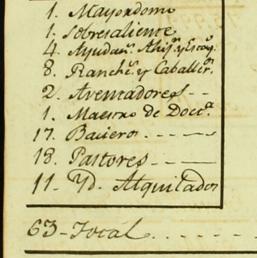 1. Mayordomo
1. Sobresaliente
4. Ayudan.s
8. Ranche.s y Caballer.s
2. Aventadores
1. Maestro de Docc.a
17. Baciero
18. Pastores
11. Yd. Alquilados
63 - Total